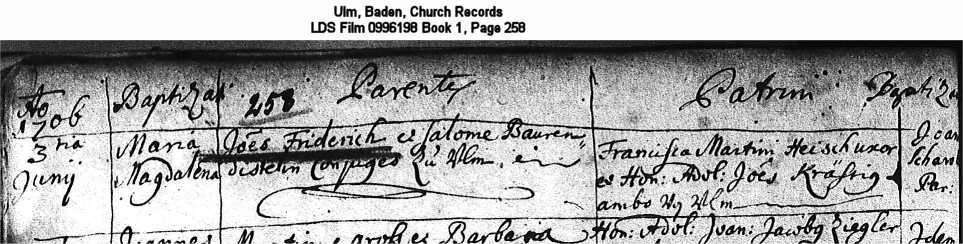 Ulm, Baden, Church Records
LDS Film 0996198 Book 1, Page 258
Ao 1706 Baptizati 258 Parentes Patrini Baptiza
3tia Juny
Maria Magdalena
Joẽs Friderich et Salome Bauren
distelin Conjuges Zu Ulm
Francisca Martini Heisch uxor
et Hon: Adol: Joẽs Kräftig
ambo Ulm
Joan
Par:
Joannes
Martin grol et Barbara
Hon: Adol: Joan: Jacoby Ziegler
Idem